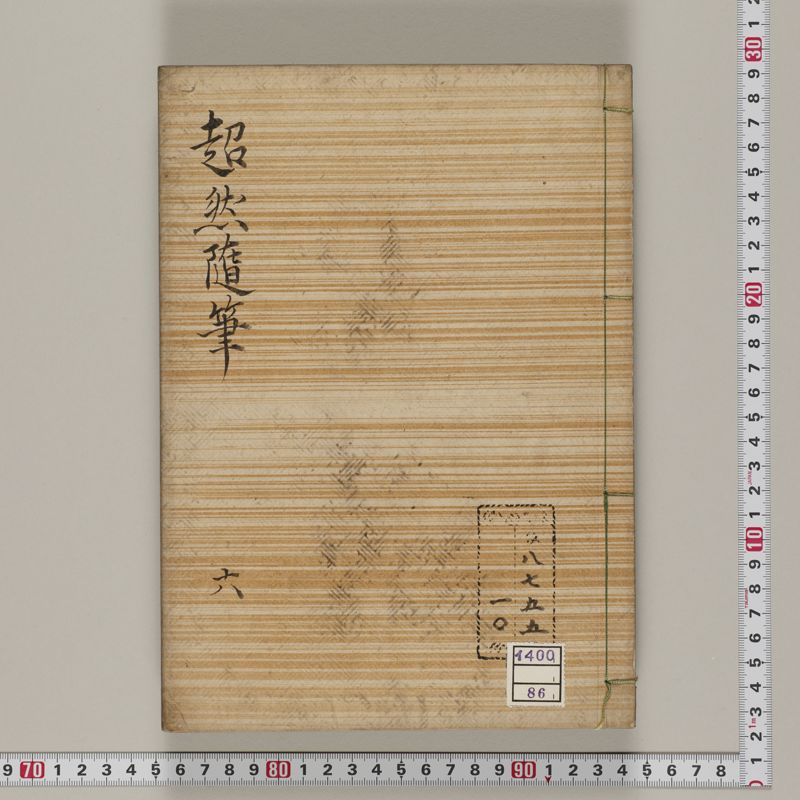 超然随筆
六
八七五五
一〇
1400
86
30
9
8
7
6
5
4
3
2
1
20
9
8
7
6
5
4
3
2
1
10
9
8
7
6
5
4
3
1m
2
9 70 1 2 3 4 5 6 7 8 9 80 1 2 3 4 5 6 7 8 9 90 1 2 3 4 5 6 7 8